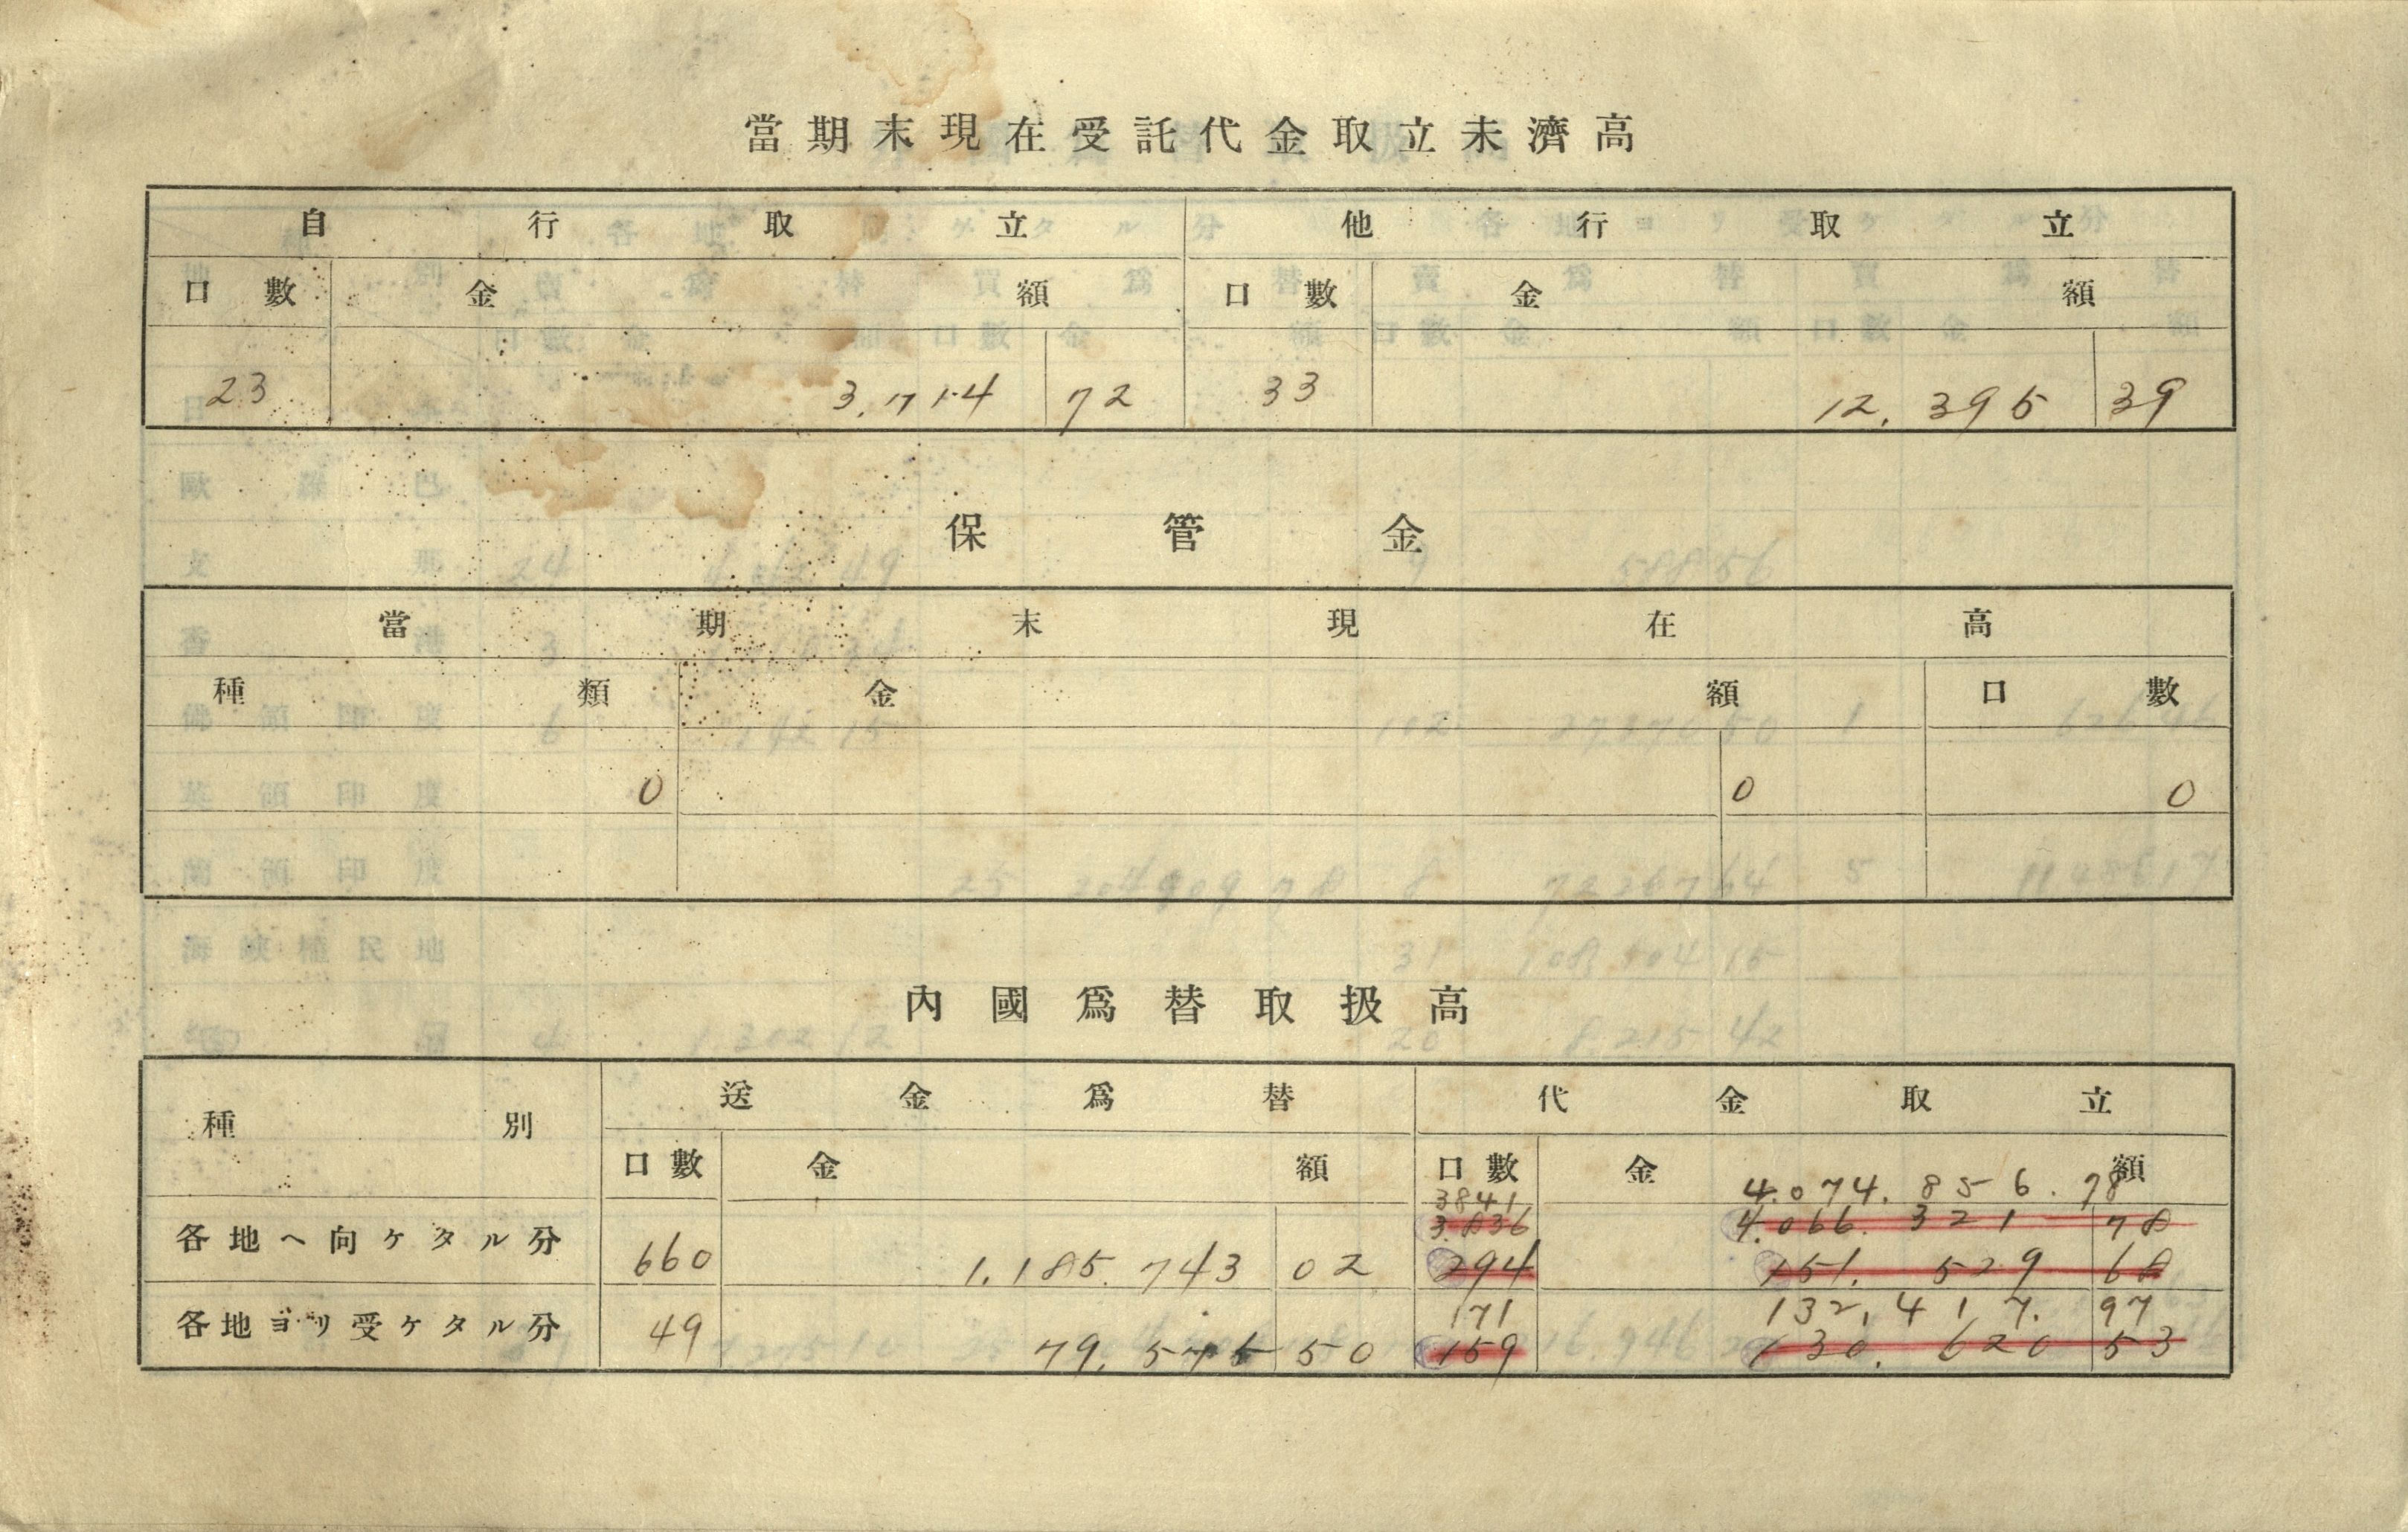 當期末現在受託代金取立未濟高
自行取立 他行取立
口數 金額 口數 金額
23 3,714 72 33 12,395 39
保管金
當期末現在高
種類 金額 口數
0 0 0
內國爲替取扱高
種別 送金爲替 代金取立
口數 金額 口數 金額
3841 4.074.856.78
各地ヘ向ケタル分 660 1.185.743 02 3.836 4.066.321 78
294 151.529 68
各地ヨリ受ケタル分 49 79.576 50 171 132,417.97
159 130.620 53